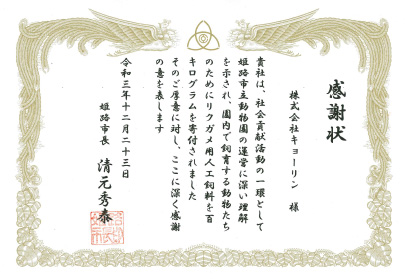 感謝状
株式会社キョーリン 様
貴社は、社会貢献活動の一環として
姫路市立動物園の運営に深い理解
を示され、園内で飼育する動物たち
のためにリクガメ用人工飼料を百
キログラムを寄付されました
そのご厚意に対し、ここに深く感謝
の意を表します
令和三年十二月二十三日
姫路市長 清元秀泰